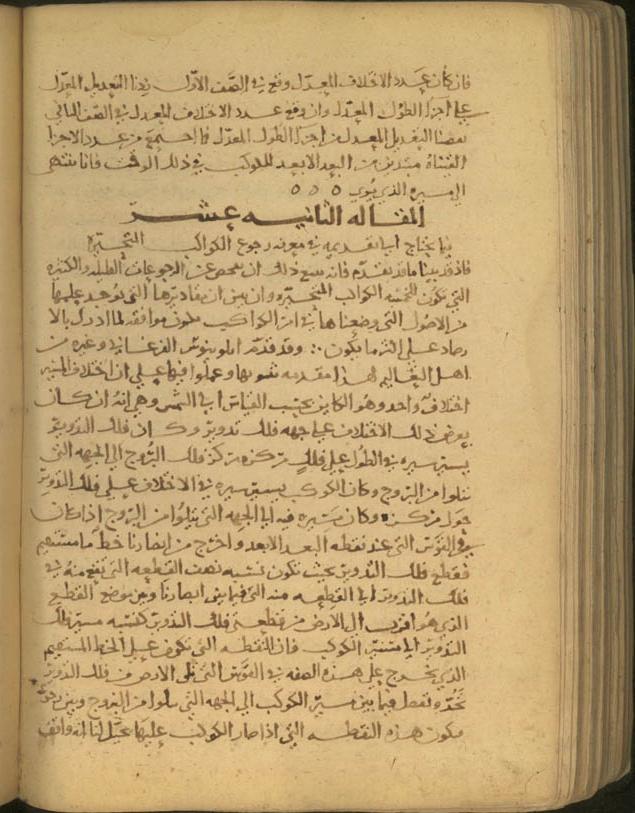 فان كان عدد الاختلاف المعدل وقع في الصف الاول زدنا التعديل المعدل
علي اجزا الطول المعدل وان وقع عدد الاختلاف المعدل في الصف الثاني
نقصنا التعديل المعدل من اجزا الطول المعدل فما اجتمع من عدد الاجزا
القيناه مبتدين من البعد الابعد للكوكب في ذلك الوقت فانا ننتهي
الي مسيره الذي يري ه ه ه
المقاله الثانيه عشر
فيما يحتاج الي تقديمه في معرفه رجوع الكواكب المتحيره
فاذ قد بينا ما قد تقدم فانه يتبع ذلك ان نفحص عن الرجوعات القليله والكثيره
التي تكون للخمسه الكواكب المتحيره وان نبين ان مقاديرها التي توجد عليها
من الاصول التي وضعناها في امر الكواكب تكون موافقه لما ادرك بالا
رصاد علي اكثر ما يكون ∴ وقد قدم ابلونيوس الفرغاني وغيره من
اهل التعاليم لهذا مقدمه وعملوا فيها علي ان اختلاف المسير
اختلاف واحد وهو الكاين بحسب القياس الي الشمس وهي انه ان كان
يعرض ذلك الاختلاف علي جهه فلك تدوير وكان فلك التدوير
يسير مسيره في الطول علي فلك مركزه مركز فلك البروج الي الجهه التي
تتلوا من البروج وكان الكوكب يسير مسيره في الاختلاف علي فلك التدوير
حول مركزه وكان مسيره فيه الي الجهه التي تتلوا من البروج اذا كان
في القوس التي عند نقطه البعد الابعد واخرج من ابصارنا خط ما مستقيم
فقطع فلك التدوير بحيث تكون نسبه نصف القطعه التي تقع منه في
فلك التدوير الي القطعه منه التي فيما بين ابصارنا وبين موضع القطع
الذي هو اقرب الي الارض من قطعتي فلك التدوير كنسبه مسير فلك
التدوير الي مسير الكوكب فان النقطه التي تكون علي الخط المستقيم
الذي يخرج علي هذه الصفه في القوس التي تلي الارض من فلك التدوير
تحد وتفصل فيما بين مسير الكوكب الي الجهه التي تتلوا من البروج وبين رجوعه
فتكون هذه النقطه التي اذا صار الكوكب عليها تخيل لنا انه واقف